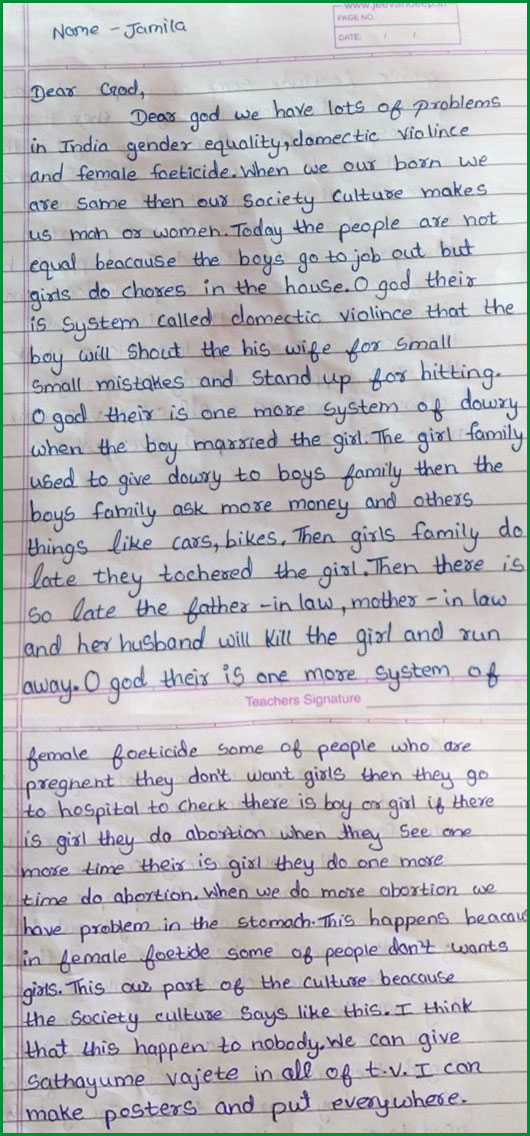 www.jeevandeep.in
PAGE NO.
DATE: / /
Name - Jamila
Dear God,
Dear god we have lots of problems
in India gender equality, domectic violince
and female foeticide. When we our born we
are same then our society culture makes
us man or women. Today the people are not
equal beacause the boys go to job out but
girls do chores in the house. O god their
is system called domectic violince that the
boy will shout the his wife for small
small mistakes and stand up for hitting.
O god their is one more system of dowry
when the boy married the girl. The girl family
used to give dowry to boys family then the
boys family ask more money and others
things like cars, bikes. Then girls family do
late they tochered the girl. Then there is
so late the father-in law, mother-in law
and her husband will kill the girl and run
away. O god their is one more system of
Teachers Signature
female foeticide some of people who are
pregnent they don't want girls then they go
to hospital to check there is boy or girl if there
is girl they do abortion when they see one
more time their is girl they do one more
time do abortion. When we do more abortion we
have problem in the stomach. This happens beacau
in female foetide some of people don't wants
girls. This our part of the culture beacause
the society culture says like this. I think
that this happen to nobody. We can give
sathayume vajete in all of t.v. I can
make posters and put everywhere.